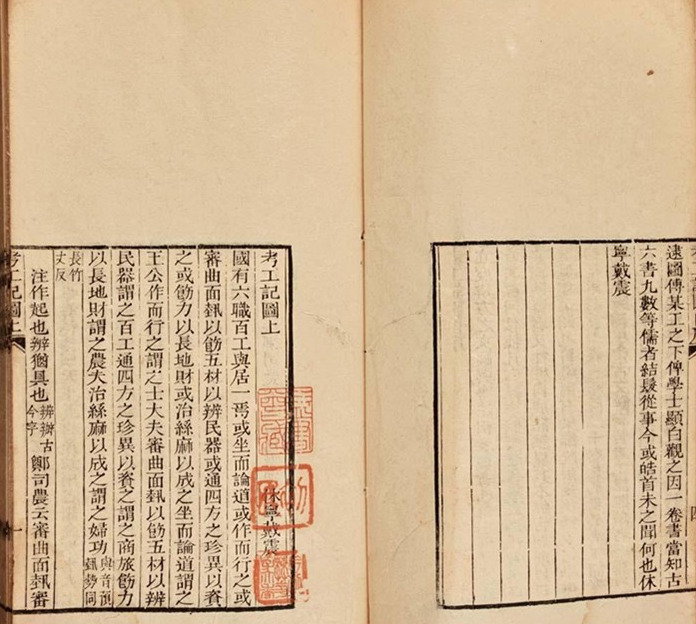 逺圖傳某工之下俾學士顯白觀之因一卷書當知古
六書九數等儒者結髮從事今或皓首未之聞何也休
寧戴震
考工記圖上
休寧戴震
國有六職百工與居一焉或坐而論道或作而行之或
審曲面埶以飭五材以辨民器或通四方之珍異以資
之或飭力以長地財或治絲麻以成之坐而論道謂之
王公作而行之謂之士大夫審曲面埶以飭五材以辨
民器謂之百工通四方之珍異以資之謂之商旅飭力
以長地財謂之農夫治絲麻以成之謂之婦功與音預埶勢同
長竹丈反
注作起也辨猶具也辨辦古今字鄭司農云審曲面埶審
考工記圖上 一